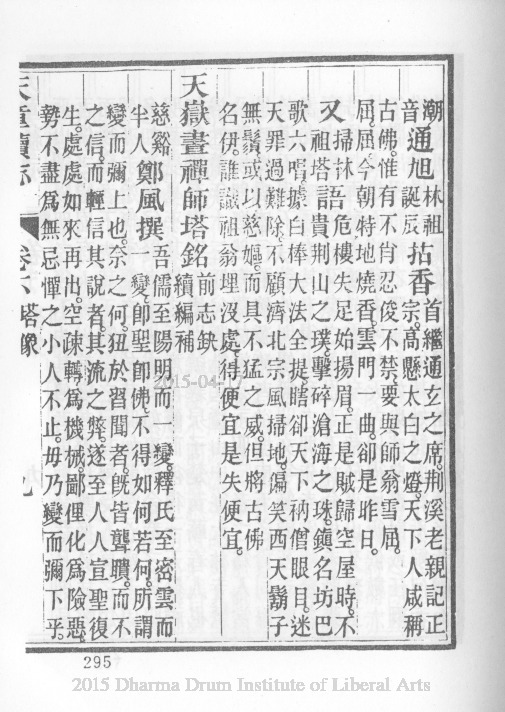 潮音通旭林祖誕反拈香首繼通玄之席荆溪老親記正宗。高懸太白之燈。天下人咸稱
古佛。惟有不肖忍俊不禁。要與師翁雪屈。
屈。屈。今朝特地燒香。雲門一曲。卻是昨日。
又掃林祖塔語危樓失足始揚眉。正是賊歸空屋時。不貴荆山之璞。擊碎滄海之珠。鎮名坊巴
歌六唱。據白棒大法全提。瞎卻天下衲僧眼目。迷
天罪過難除。不顧濟北宗風掃地。偏笑西天鬍子
無鬚。或以慈嫗。而具不猛之威。但將古佛
名伊。誰識祖翁埋沒處。得便宜是失便宜。
天嶽晝禪師塔銘前志缺續編補
慈谿半人鄭風撰吾儒至陽明而一變。釋氏至密雲而一變。卽聖卽佛。不得如何若何。所謂
變而彌上也。奈之何。狃於習聞者。旣皆聾瞶而不
之信。而輕信其說者。其流之弊。遂至人人宣聖復
生。處處如來再出。空疎轉爲機械。鄙俚化爲險惡。
勢不盡爲無忌憚之小人不止。毋乃變而彌下乎。
天童續志
卷下 塔像
九
295
2015-04-17
2015 Dharma Drum Institute of Liberal Arts